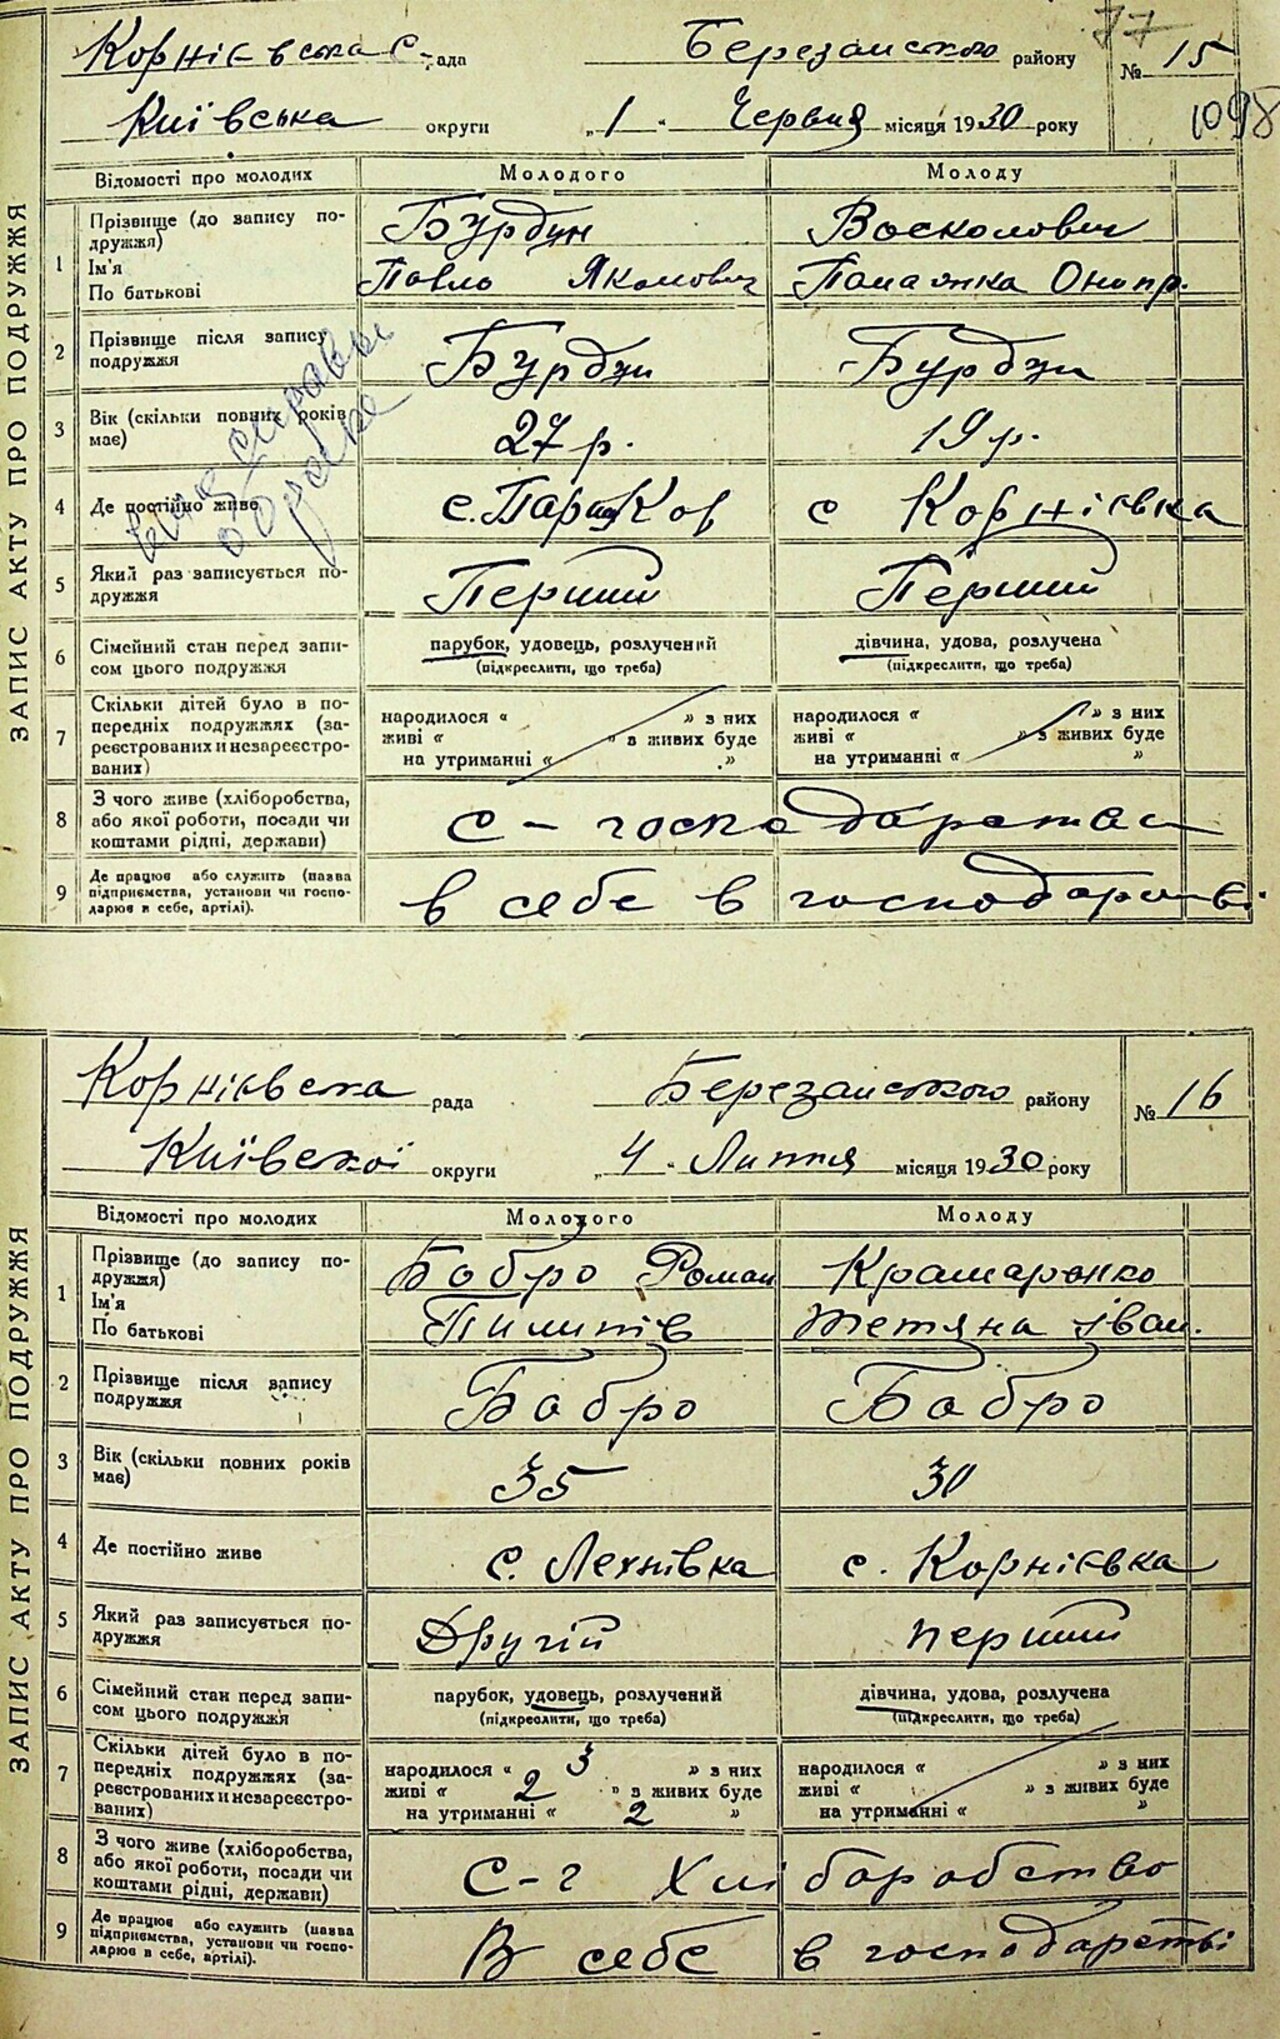 77
Корніївська С-рада Березанського району № 15
Київська округи „1“ Червня місяця 1930 року 1098
ЗАПИС АКТУ ПРО ПОДРУЖЖЯ
Відомості про молодих Молодого Молоду
1 Прізвище (до запису по- Бурдун Восколович
дружжя)
Ім'я Павло Якомович
По батькові
2 Прізвище після запису Бурдун Бурдун
подружжя
3 Вік (скільки повних років 27 р. 19 р.
має)
4 Де постійно живе с. с Корніївка
5 Який раз записується по- Перший Перший
дружжя
6 Сімейний стан перед запи- парубок, удовець, розлучений дівчина, удова, розлучена
сом цього подружжя (підкреслити, що треба) (підкреслити, що треба)
7 Скільки дітей було в по-
передніх подружжях (за- народилося “ „ з них народилося “ „ з них
реєстрованих и незареєстро- живі “ „ з живих буде живі “ „ з живих буде
ваних) на утриманні “ „ на утриманні “ „
8 З чого живе (хліборобства,
або якої роботи, посади чи с - господарства
коштами рідні, держави)
9 Де працює або служить (назва
підприємства, установи чи госпо- в себе в господарстві
дарює в себе, артілі).
Корнієвска рада Березанського району № 16
Київскої округи „4“ Липня місяця 1930 року
ЗАПИС АКТУ ПРО ПОДРУЖЖЯ
Відомості про молодих Молодого Молоду
1 Прізвище (до запису по- Бобро Роман Крамаронко
дружжя)
Ім'я Пилипів Тетяна Іван.
По батькові
2 Прізвище після запису Бобро Бобро
подружжя
3 Вік (скільки повних років 35 30
має)
4 Де постійно живе с. Лехнівка с. Корнієвка
5 Який раз записується по- Другий перший
дружжя
6 Сімейний стан перед запи- парубок, удовець, розлучений дівчина, удова, розлучена
сом цього подружжя (підкреслити, що треба) (підкреслити, що треба)
7 Скільки дітей було в по-
передніх подружжях (за- народилося “ 3 „ з них народилося “ „ з них
реєстрованих и незареєстро- живі “ 2 „ з живих буде живі “ „ з живих буде
ваних) на утриманні “ 2 „ на утриманні “ „
8 З чого живе (хліборобства,
або якої роботи, посади чи С-г Хліборобство
коштами рідні, держави)
9 Де працює або служить (назва
підприємства, установи чи госпо- В себе в господарстві
дарює в себе, артілі).